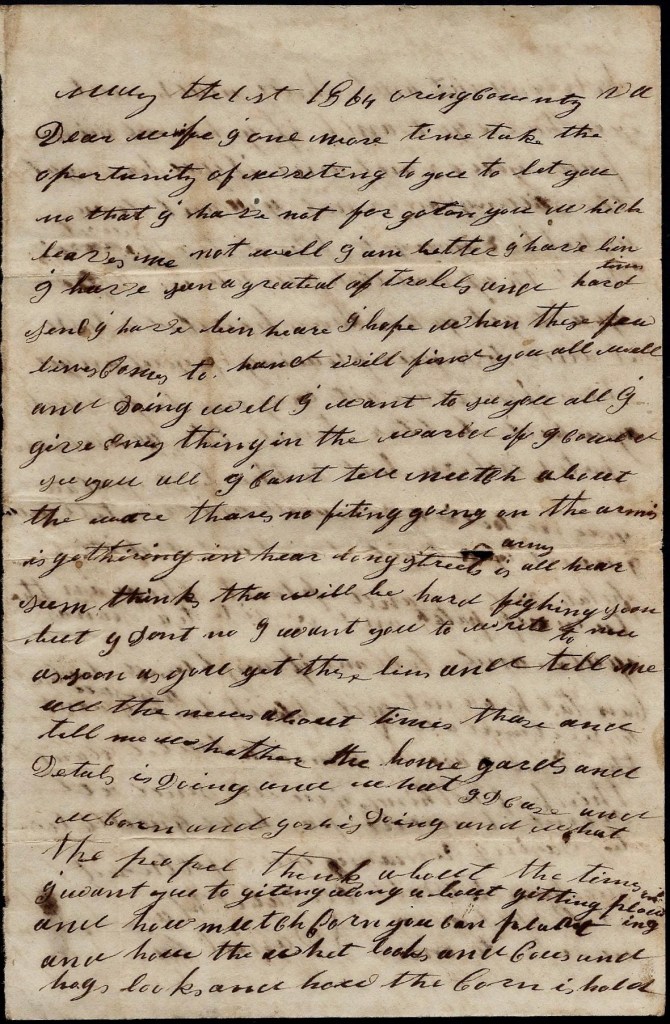 May the 1st 1864 oring County Va
Dear wife I one more time take the
opertunity of wreting to you to let you
no that I have not forgoton you which
leaves me not well I am better I have bin
I have sun a greateal of trobls and hard times
senc I have bin heare I hope when these few
lines Comes to hand will find you all well
and Doing well I want to se you all I
give evry thing in the world if I Could
se you all I Cant tell mutch about
the ware thares no fiting going on the armis
is gathiring in hear longstreets army is all hear
sum thinks tha will be hard fighing soon
but I Dont no I want you to write to me
as soon as you get thes lins and tell me
all the news about times thare and
tell me whather the home gards and
Detals is Doing and what I D Case and
w Corn and is Doing and what
the peopel think about the times
I want you to giting along about gitting plowing
and how mutch Corn you Can plant
and how the whet looks and Cows and
hogs looks and how the Corn is hold